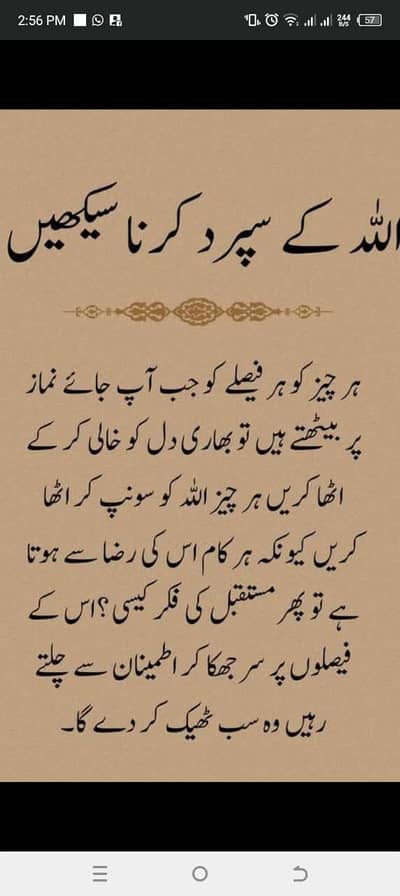 2:56 PM
244 B/S
57
اللہ کے سپرد کرنا سیکھیں
ہر چیز کو ہر فیصلے کو جب آپ جائے نماز
پر بیٹھتے ہیں تو بھاری دل کو خالی کر کے
اٹھا کریں ہر چیز اللہ کو سونپ کر اٹھا
کریں کیونکہ ہر کام اس کی رضا سے ہوتا
ہے تو پھر مستقبل کی فکر کیسی؟ اس کے
فیصلوں پر سر جھکا کر اطمینان سے چلتے
رہیں وہ سب ٹھیک کر دے گا۔